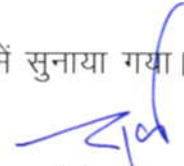 में सुनाया गया।